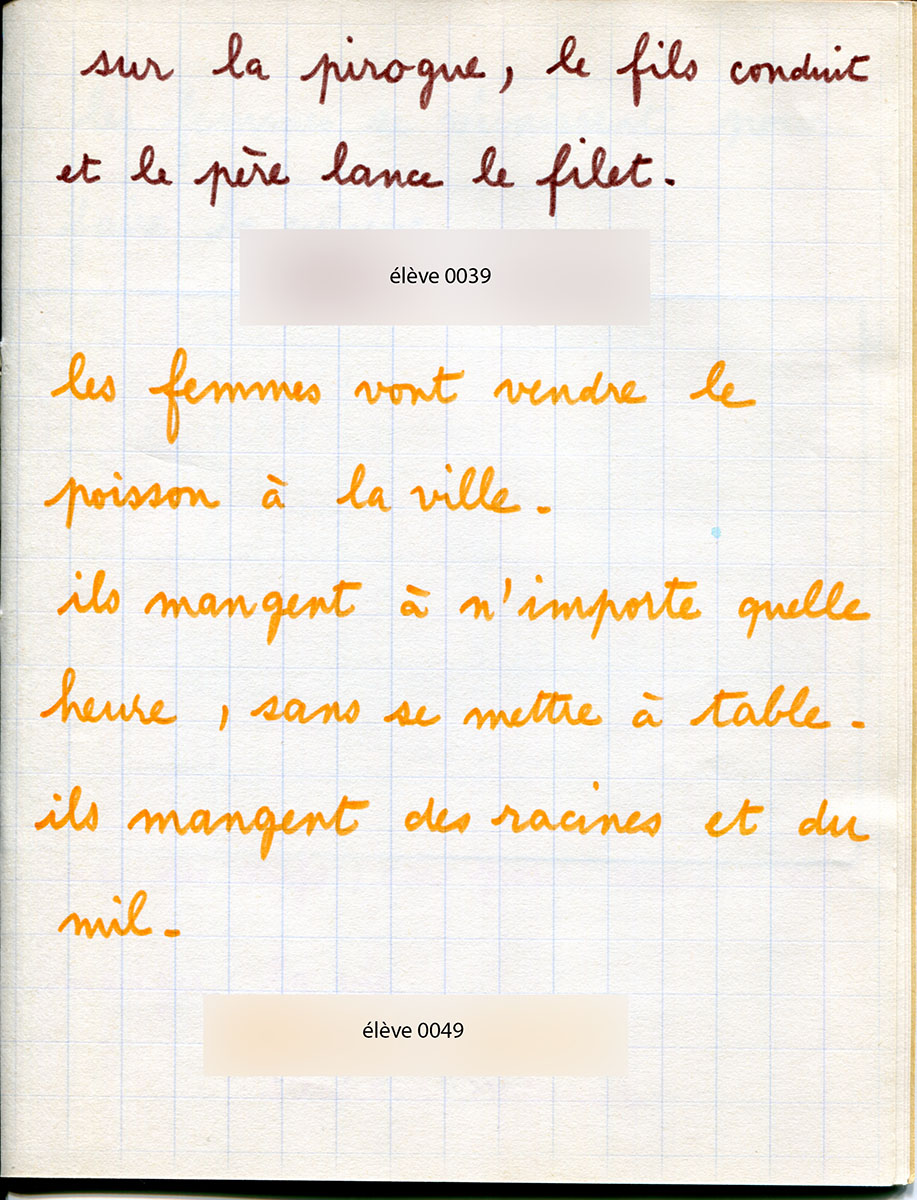 sur la pirogue, le fils conduit
et le père lance le filet.
élève 0039
les femmes vont vendre le
poisson à la ville.
ils mangent à n'importe quelle
heure, sans se mettre à table.
ils mangent des racines et du
mil.
élève 0049